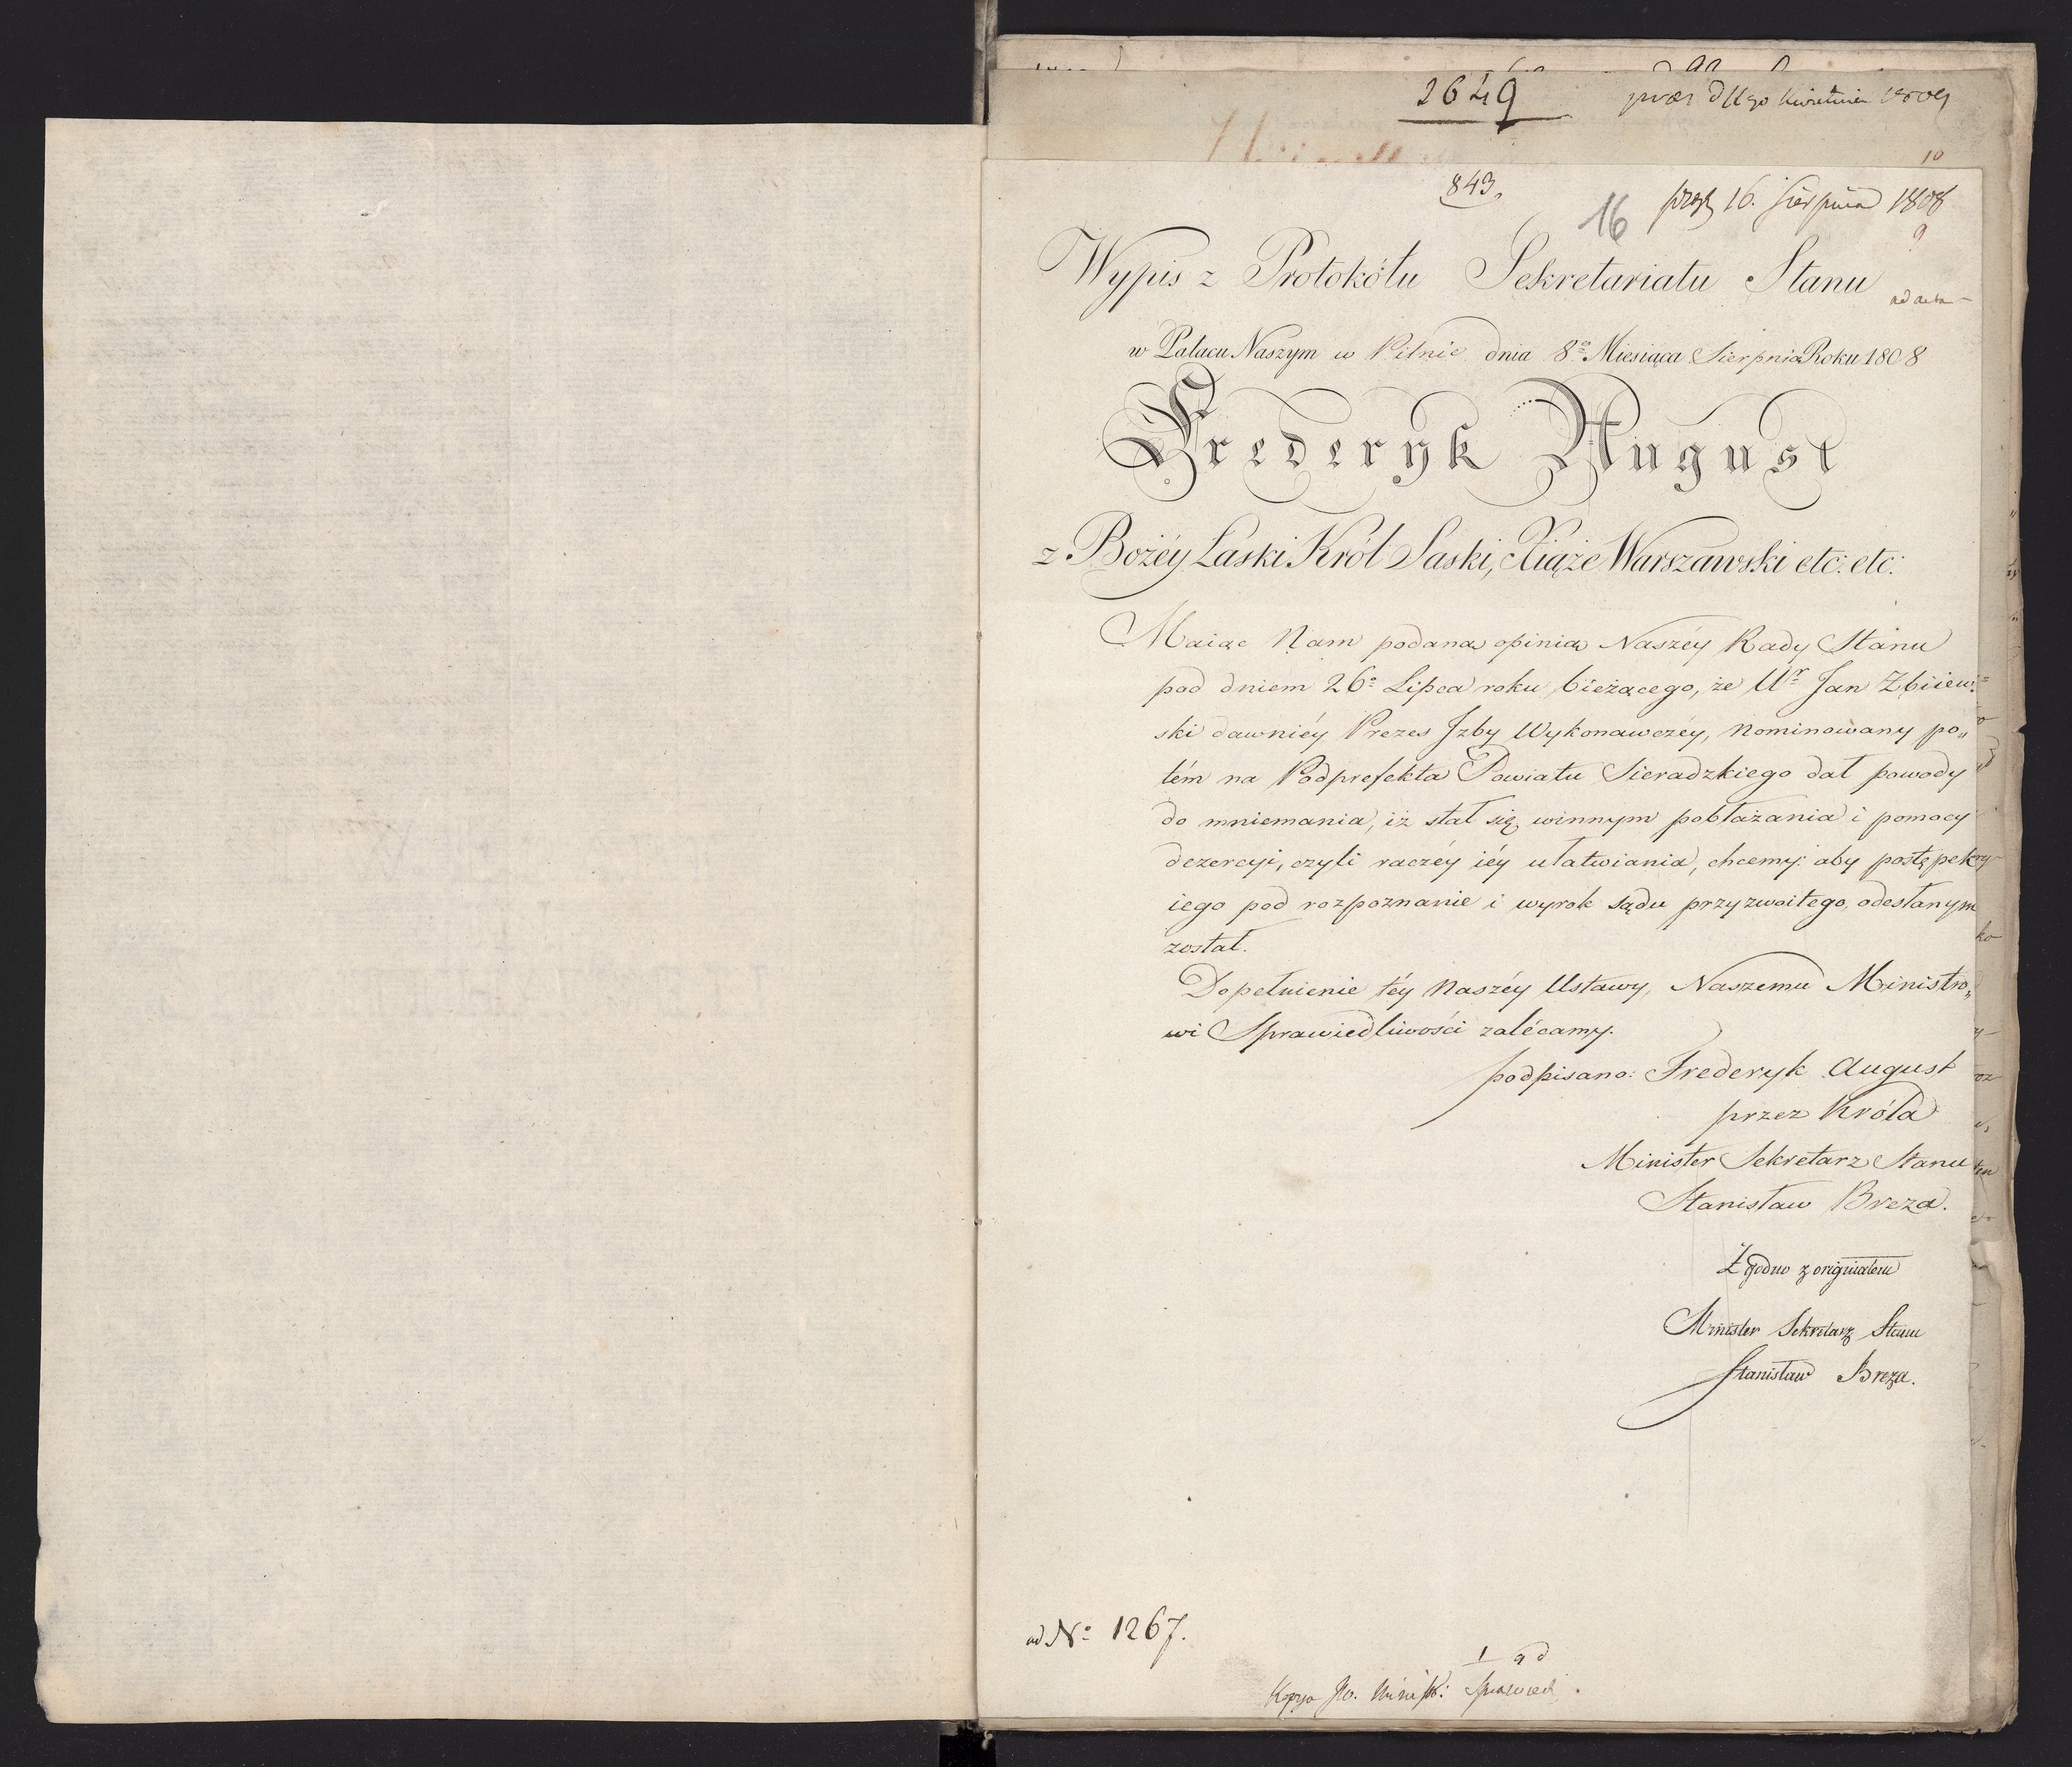 2649
praes d 11go Kwietnia 1809
10
843.
16
prez 16. Sierpnia 1808
9
Wypis z Protokółu Sekretariatu Stanu
ad acta
w Pałacu Naszym w Pilnic dnia 8o Miesiąca Sierpnia Roku 1808
Frederyk August
z Bożéy Łaski Król Saski, Xiąże Warszawski etc: etc:
Maiąc Nam podaną opinią Naszéy Rady Stanu
pod dniem 26o Lipca roku bieżącego, że Ur Jan Zbiiew=
ski dawniéy Prezes Jzby Wykonawczéy, Nominowany po„
tém na Podprefekta Powiatu Sieradzkiego dał powody
do mniemania, iż stał się winnym pobłażania i pomocy
dezercyi, czyli raczéy iéy ułatwiania, chcemy: aby postępek
iego pod rozpoznanie i wyrok sądu przyzwoitego, odesłanym
został.
Dopełnienie téy Naszéy Ustawy, Naszemu Ministro„
wi Sprawiedliwości zalécamy.
podpisano: Frederyk August
przez Króla
Minister Sekretarz Stanu
Stanisław Breza.
Zgodno z originałem
Minister Sekretarz Stanu
Stanisław Breza.
ad No 1267.
Kopja Jw. Ministr: Sprawied.